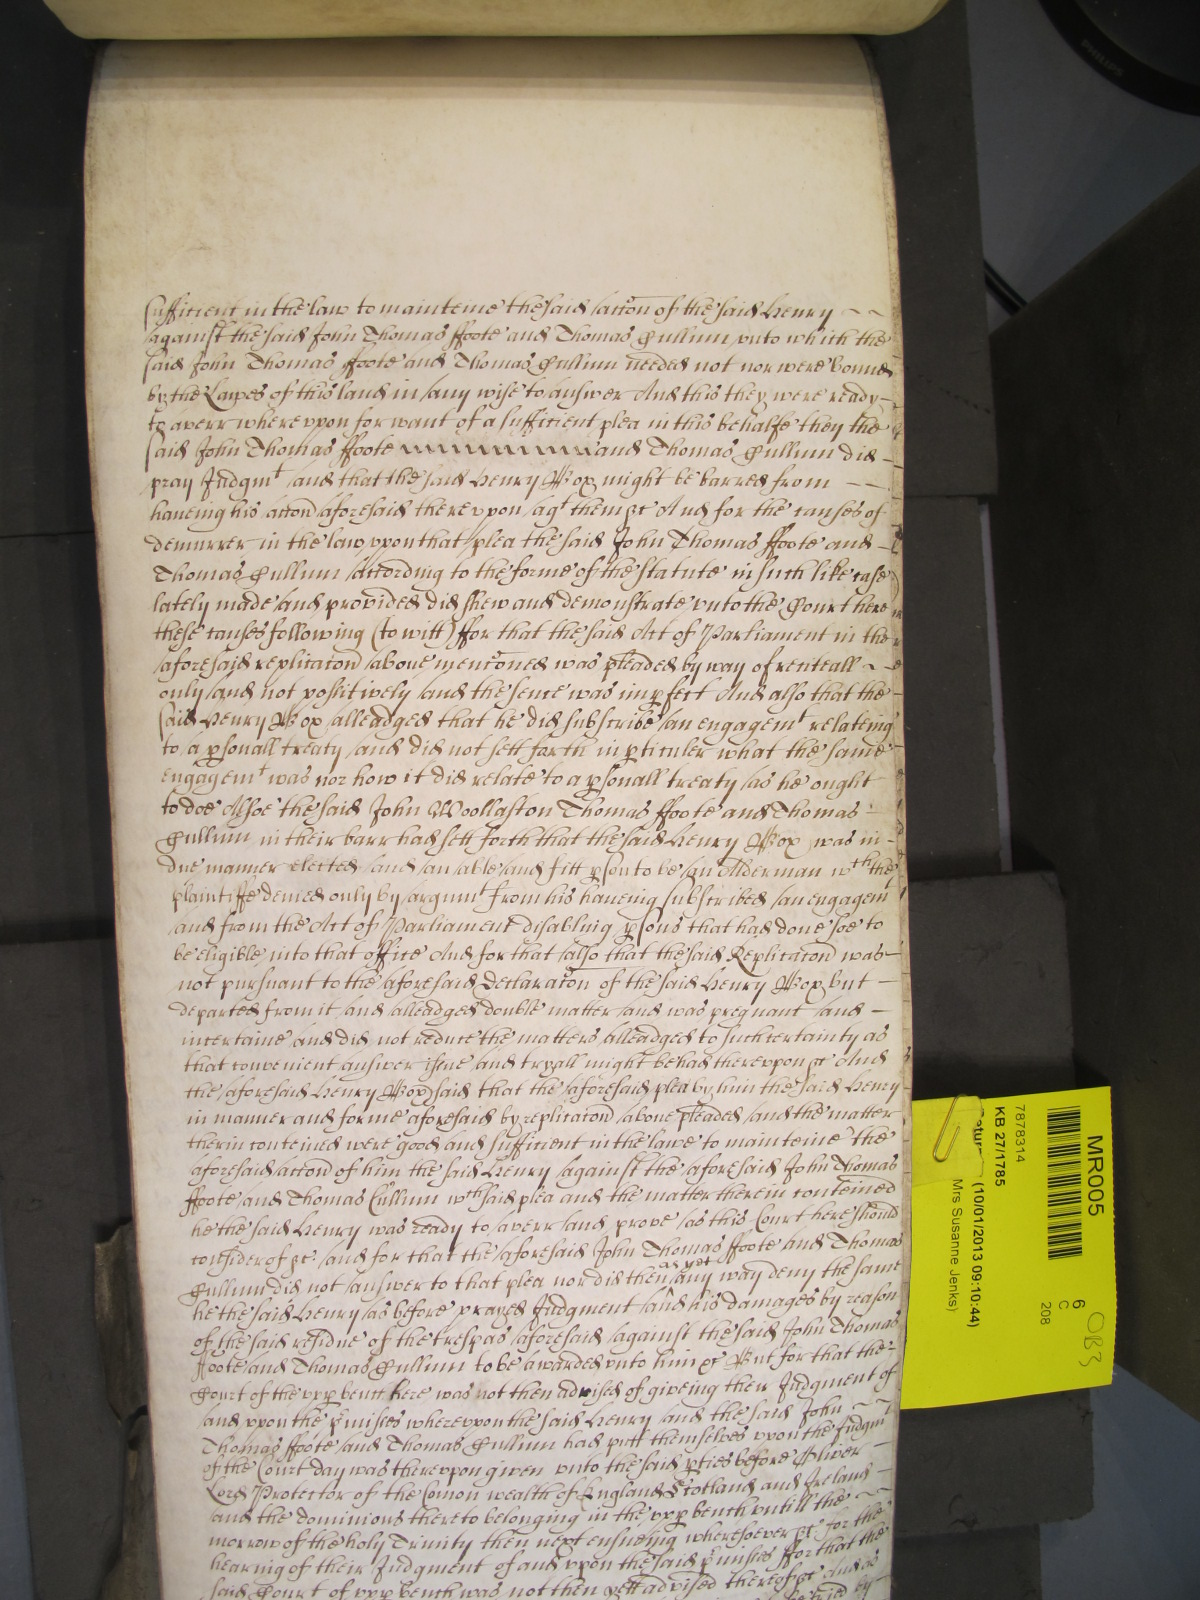 sufficient in the law to mainteine the said acc̃on of the said Henry
against the said John Thomas ffoote and Thomas Cullum vnto which the
said John Thomas ffoote and Thomas Cullum needed not nor were bound
by the Lawes of this land in any wise to answer And this they were ready
to averr wherevpon for want of a sufficient plea in this behalfe they the
said John Thomas ffoote and Thomas Cullum did
pray Judgmt and that the said Henry Box might be barred from
haueing his acc̃on aforesaid therevpon agt them &c And for the causes of
demurrer in the law vpon that plea the said John Thomas ffoote and
Thomas Cullum according to the forme of the statute in such like case
lately made and provided did shew and demonstrate vnto the Court here
these causes following (to witt) ffor that the said Act of Parliament in the
aforesaid replicac̃on aboue menc̃oned was pleaded by way of recitall
only and not possitively and the sence was imꝑfect And also that the
said Henry Box alleadged that he did subscribe an engagemt relateing
to a ꝑsonall treaty and did not sett forth in ꝑticuler what the same
engagemt was nor how it did relate to a ꝑsonall treaty as he ought
to doe Alsoe the said John Woollaston Thomas ffoote and Thomas
Cullum in their barr had sett forth that the said Henry Box was in
due manner elected and an able and fitt ꝑson to be an Alderman wch the
plaintiffe denied only by argumt from his haueing subscribed an engagemt
and from the Act of Parliament disabling ꝑsons that had done soe to
be eligible into that office And for that also that the said Replicac̃on was
not pursuant to the aforesaid Declarac̃on of the said Henry Box but
departed from it and alleadged double matter and was pregnant and
incertaine and did not reduce the matters alleadged to such certainty as
that convenient answer issue and tryall might be had therevpon &c And
the aforesaid Henry Box said that the aforesaid plea by him the said Henry
in manner and forme aforesaid by replicac̃on aboue pleaded and the matter
therin conteined were good and sufficient in the lawe to mainteine the
aforesaid acc̃on of him the said Henry against the aforesaid John Thomas
ffoote and Thomas Cullum wch said plea and the matter therein conteined
he the said Henry was ready to averr and prove as this Court here should
consider of &c. and for that the aforesaid John Thomas ffoote and Thomas
Cullum did not answer to that plea nor did then as yet any way deny the same
he the said Henry as before prayed Judgment and his damages by reason
of the said residue of the trespas aforesaid against the said John Thomas
ffoote and Thomas Cullum to be awarded vnto him &c But for that the
Court of the vpꝑ bench here was not then advised of giveing their Judgment of
and vpon the p̃misses wherevpon the said Henry and the said John
Thomas ffoote and Thomas Cullum had putt themselves vpon the Judgmt
of the Court day was therevpon given vnto the said ꝑties before Oliver
Lord Protector of the Com̃on wealth of England Scotland and Ireland
and the dominions thereto belonging in the vpꝑ bench vntill the
morrow of the holy Trinity then next ensueing wheresoever &c for the
hearing of their Judgment of and vpon the said p̃misses ffor that the
said Court of vpꝑ bench was not then yett advised thereof &c And as
PHILIPS
MR005
7878314
KB 27/1785
(10/01/2013 09:10:44)
Mrs Susanne Jenks)
6
C
208
OB3